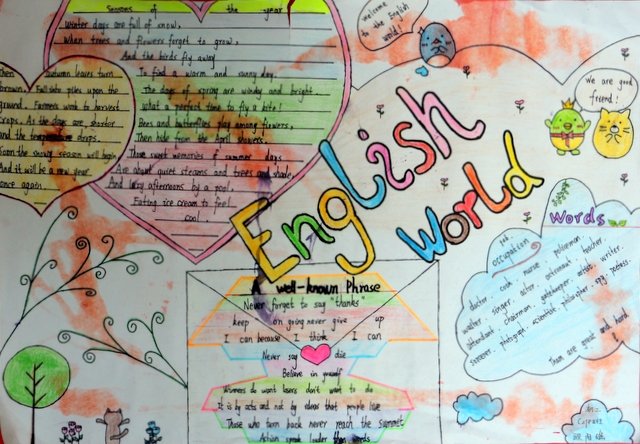 Seasons of the year
Winter days are full of snow,
When trees and flowers forget to grow,
And the birds fly away
To find a warm and sunny day.
The days of spring are windy and bright
What a perfect time to fly a kite!
Bees and butterflies play among flowers,
Then hide from the April showers.
Those sweet memories of summer days
Are about quiet streams and trees and shade,
And lazy afternoons by a pool,
Eating ice cream to feel
cool.
When autumn leaves turn
brown, Fall into piles upon the
ground. Farmers work to harvest
crops, As the days are shorter
and the drops.
Soon the snowy season will begin
And it will be a new year
once again
Welcome
to the English
world!
We are good
friend!
English
World
Words
job
occupation
doctor cook nurse policeman
waiter singer actor astronaut teacher
attendant chairman gatekeeper artist writer
scientist philosopher spy poetess
Them are great and hard
A well-known Phrase
Never forget to say "thanks"
keep on going never give up
I can because I think I can
Never say die
Believe in yourself
Winners do want losers don't want to do
It is by acts and not by ideas that people live
Those who turn back never reach the summit
Action speak louder than words